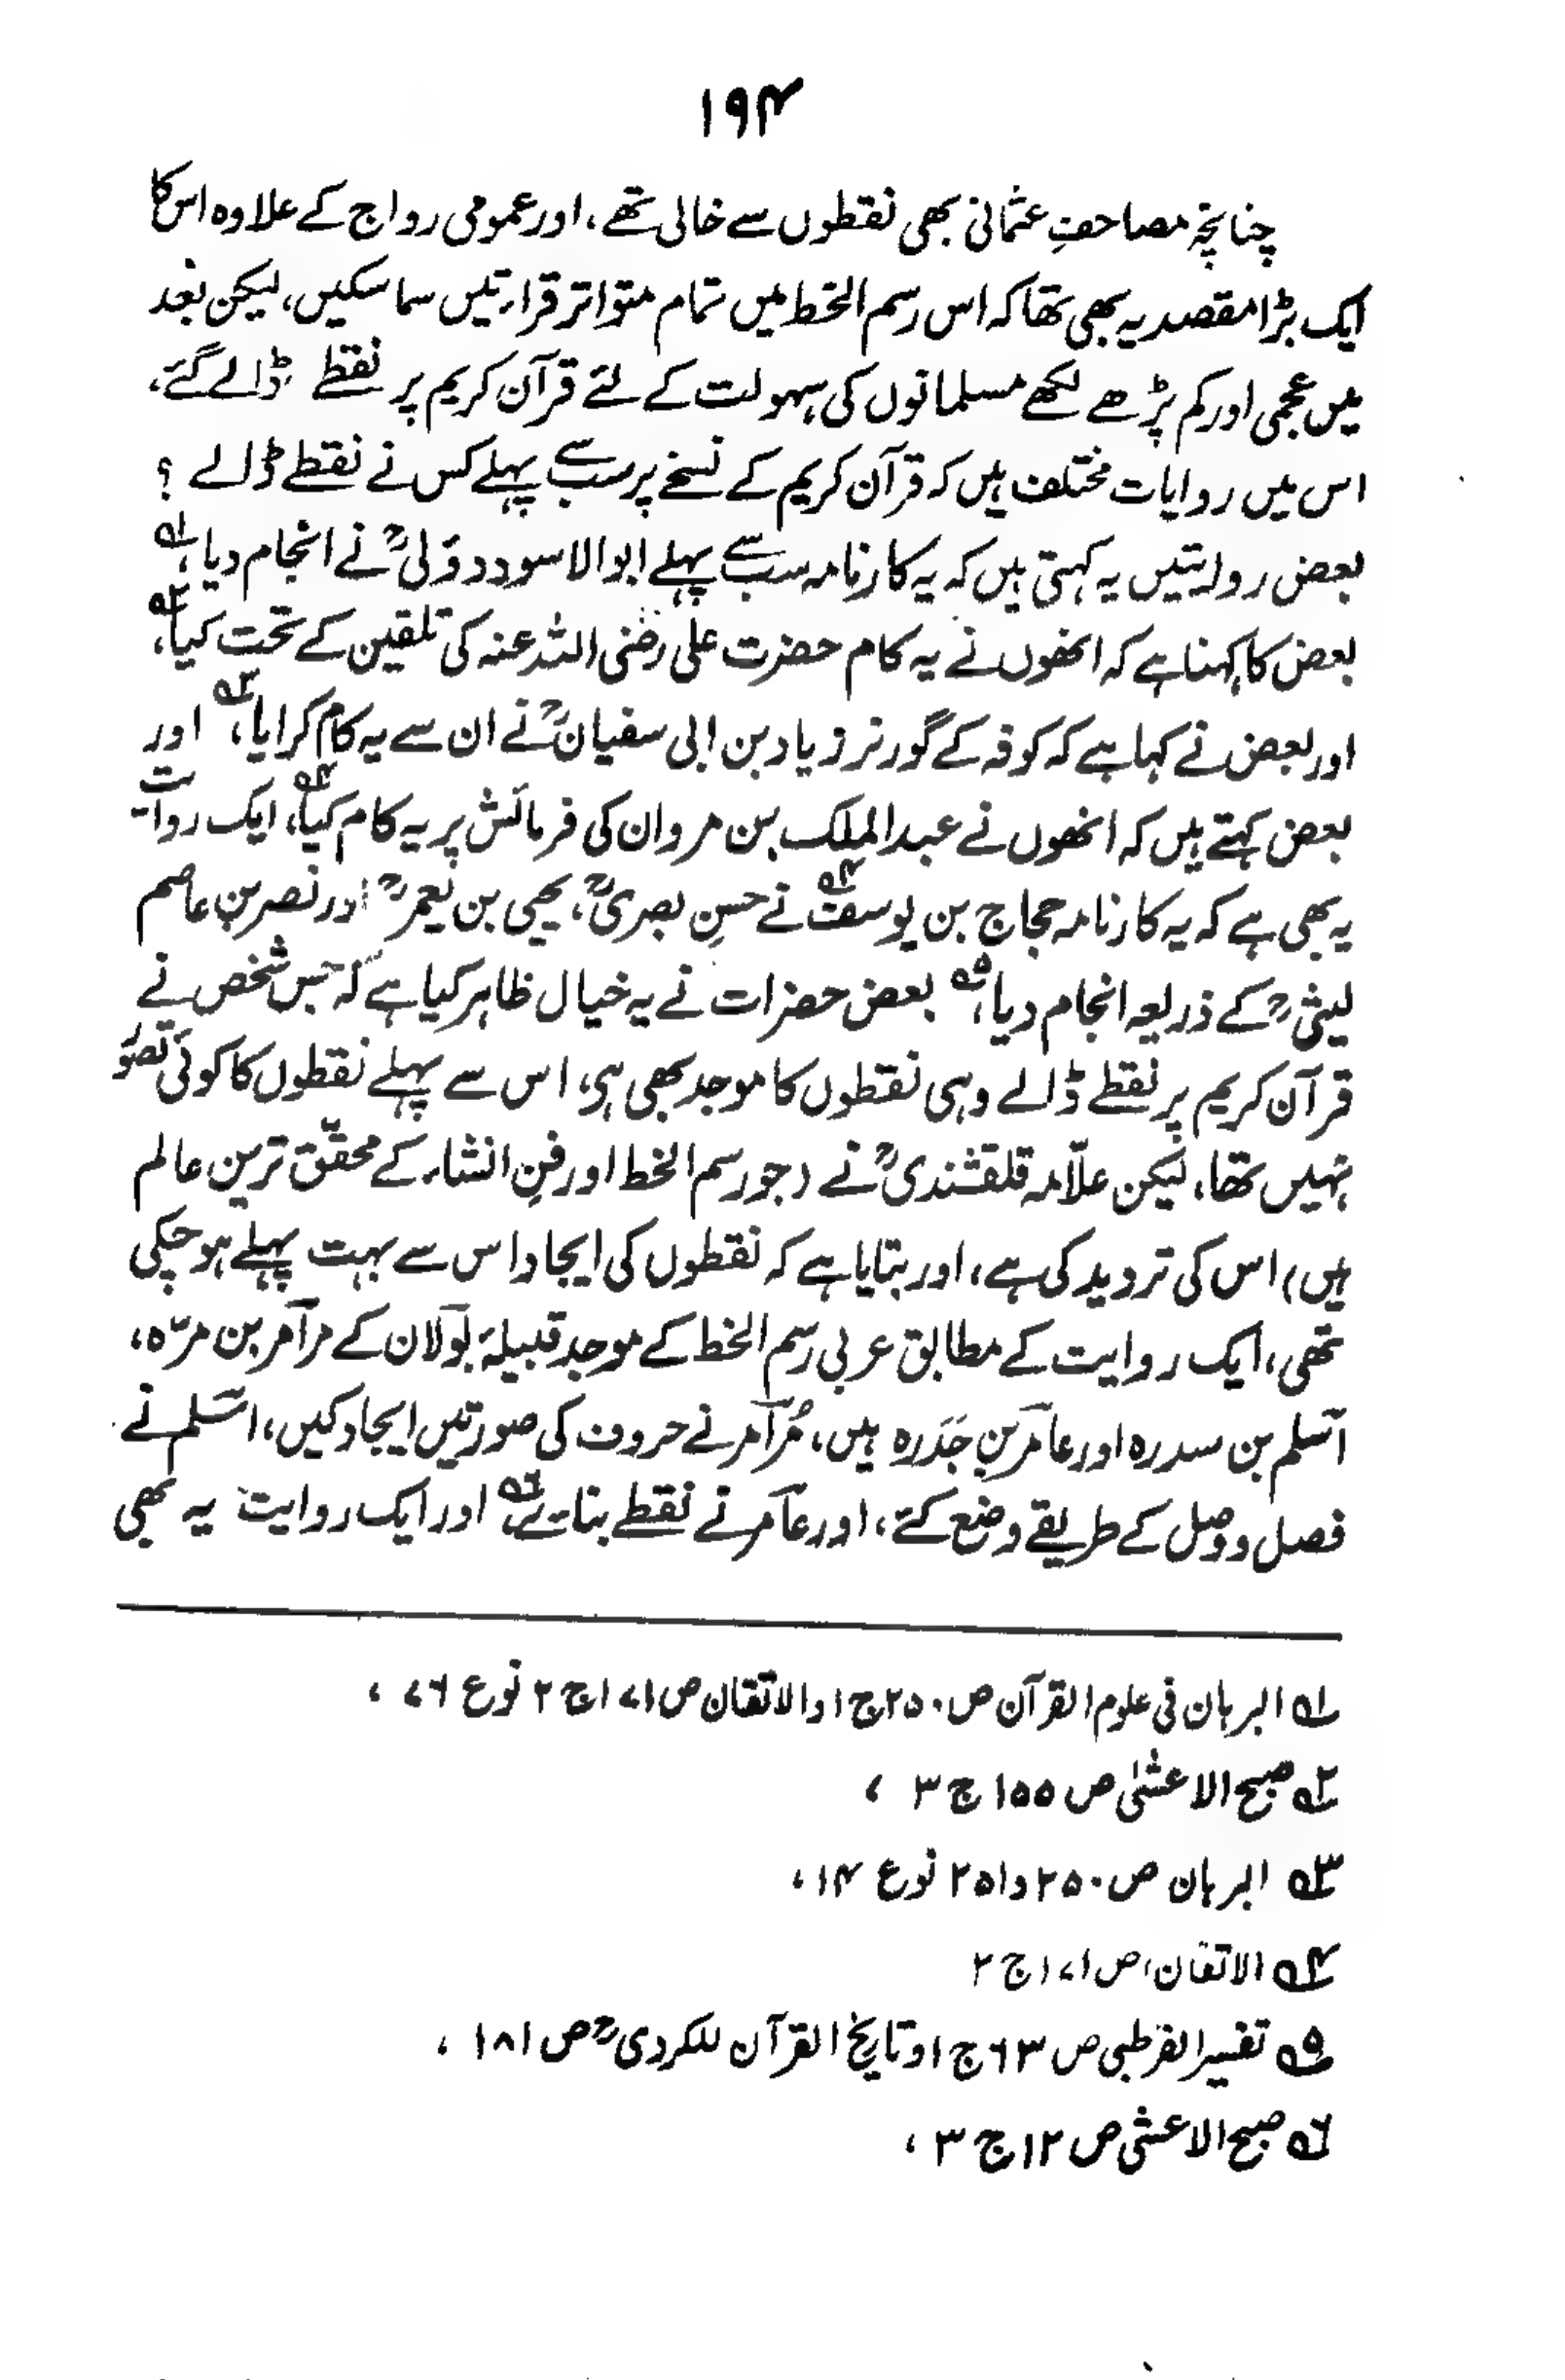 ۱۹۴
چنانچہ مصاحفِ عثمانی بھی نقطوں سے خالی تھے، اور عمومی رواج کے علاوہ اس کا
ایک بڑا مقصد یہ بھی تھا کہ اس رسم الخط میں تمام متواتر قرارتیں سما سکیں، لیکن بعد
میں عجمی اور کم پڑھے لکھے مسلمانوں کی سہولت کے لئے قرآن کریم پر نقطے ڈالے گئے،
اس میں روایات مختلف ہیں کہ قرآن کریم کے نسخے پر سب سے پہلے کس نے نقطے ڈالے ؟
بعض روایتیں یہ کہتی ہیں کہ یہ کارنامہ سب سے پہلے ابوالاسود دؤلیؒ نے انجام دیا،۱ھ
بعض کا کہنا ہے کہ انھوں نے یہ کام حضرت علی رضی اللہ عنہ کی تلقین کے تحت کیا،۲ھ
اور بعض نے کہا ہے کہ کوفہ کے گورنر زیاد بن ابی سفیانؒ نے ان سے یہ کام کرایا،۳ھ اور
بعض کہتے ہیں کہ انھوں نے عبدالملک بن مروان کی فرمائش پر یہ کام کیا،۴ھ ایک روایت
یہ بھی ہے کہ یہ کارنامہ حجاج بن یوسف۴ھ نے حسن بصریؒ، یحیی بن یعمرؒ اور نصر بن عاصم
لیثیؒ کے ذریعہ انجام دیا،۵ھ بعض حضرات نے یہ خیال ظاہر کیا ہے کہ جس شخص نے
قرآن کریم پر نقطے ڈالے وہی نقطوں کا موجد بھی ہی، اس سے پہلے نقطوں کا کوئی تصوّر
نہیں تھا، لیکن علّامہ قلقشندیؒ نے (جو رسم الخط اور فنِ انشاء کے محقّق ترین عالم
ہیں) اس کی تردید کی ہے، اور بتایا ہے کہ نقطوں کی ایجاد اس سے بہت پہلے ہو چکی
تھی، ایک روایت کے مطابق عربی رسم الخط کے موجد قبیلۂ بَوْلان کے مرآمر بن مرّہ،
اسلم بن سدرہ اور عامر بن جَدَرہ ہیں، مُرآمر نے حروف کی صورتیں ایجاد کیں، اسلم نے
فصل و وصل کے طریقے وضع کئے، اور عامر نے نقطے بنائے،۶ھ اور ایک روایت یہ بھی
۱ھ البرہان فی علوم القرآن ص ۲۵۰ ج ۱ و الاتقان ص ۱۷۱ ج ۲ نوع ۷۶ ،
۲ھ صبح الاعشیٰ ص ۱۵۵ ج ۳ ،
۳ھ البرہان ص ۲۵۰ و ۲۵۱ نوع ۱۴ ،
۴ھ الاتقان، ص ۱۷۱ ج ۲
۵ھ تفسیر القرطبی ص ۶۳ ج ۱ و تاریخ القرآن للکردیؒ ص ۱۸۱ ،
۶ھ صبح الاعشی ص ۱۲ ج ۳ ،